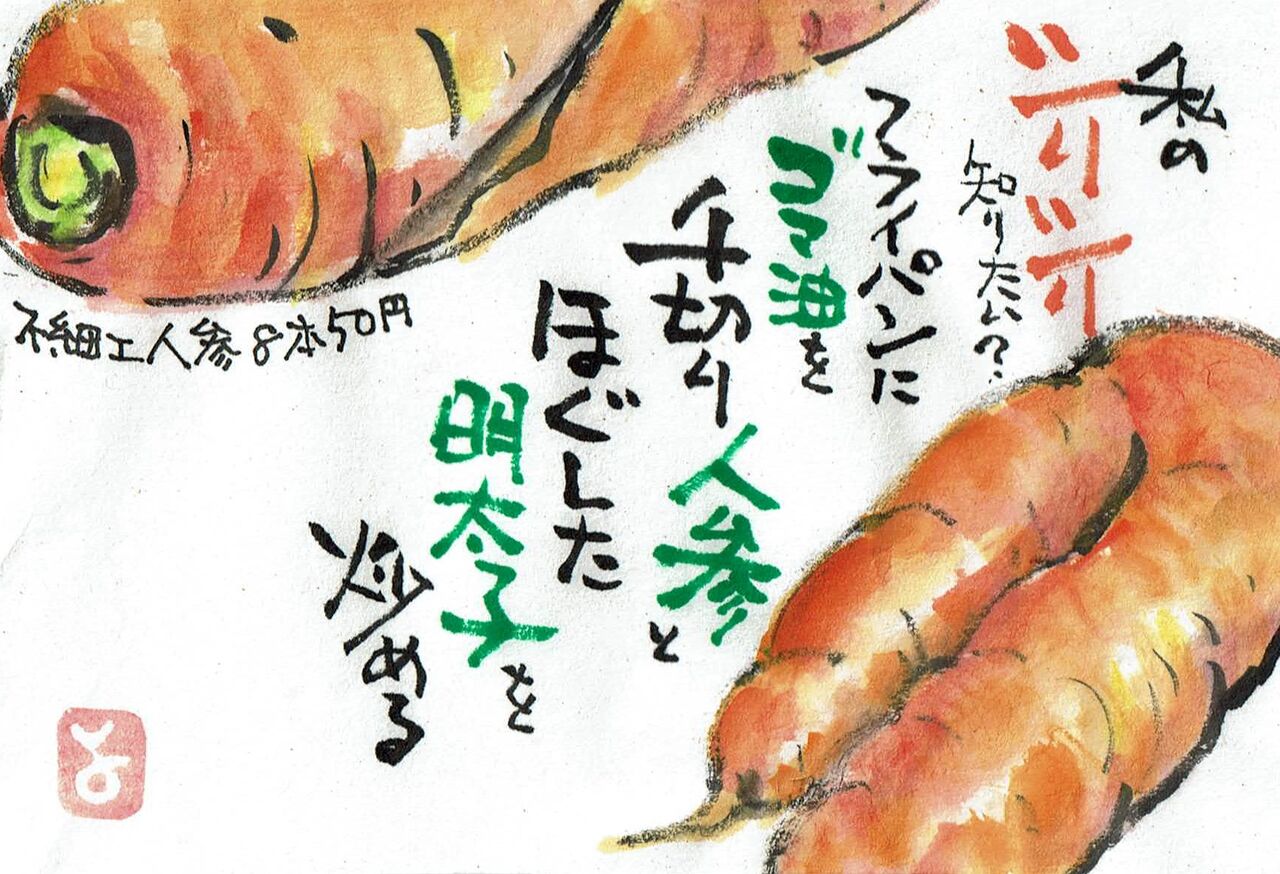 私の
シリシリ
知りたい?
フライパンに
ゴマ油を
千切り人参と
ほぐした
明太子を
炒める
不細工人参8本50円